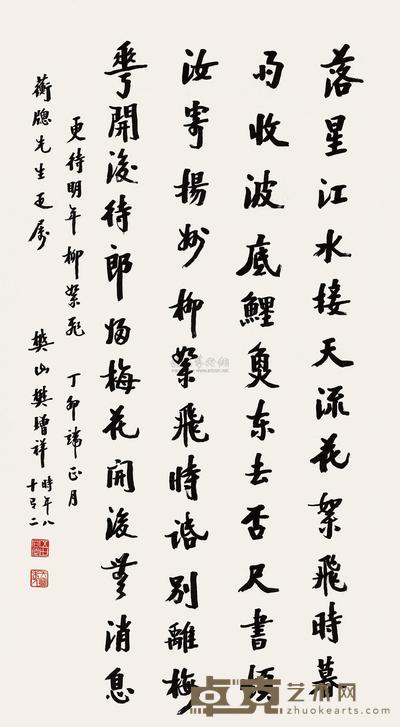 落星江水接天流花絮飛時暮
雨收波底鯉魚东去否尺書煩
汝寄揚州柳絮飛時話別離梅
華開後待郎歸梅花開後無消息
更待明年柳絮飛 丁卯端正月
蘅牕先生疋屬 樊山樊增祥時年八十有二
卓克艺术网
www.zhuokearts.com